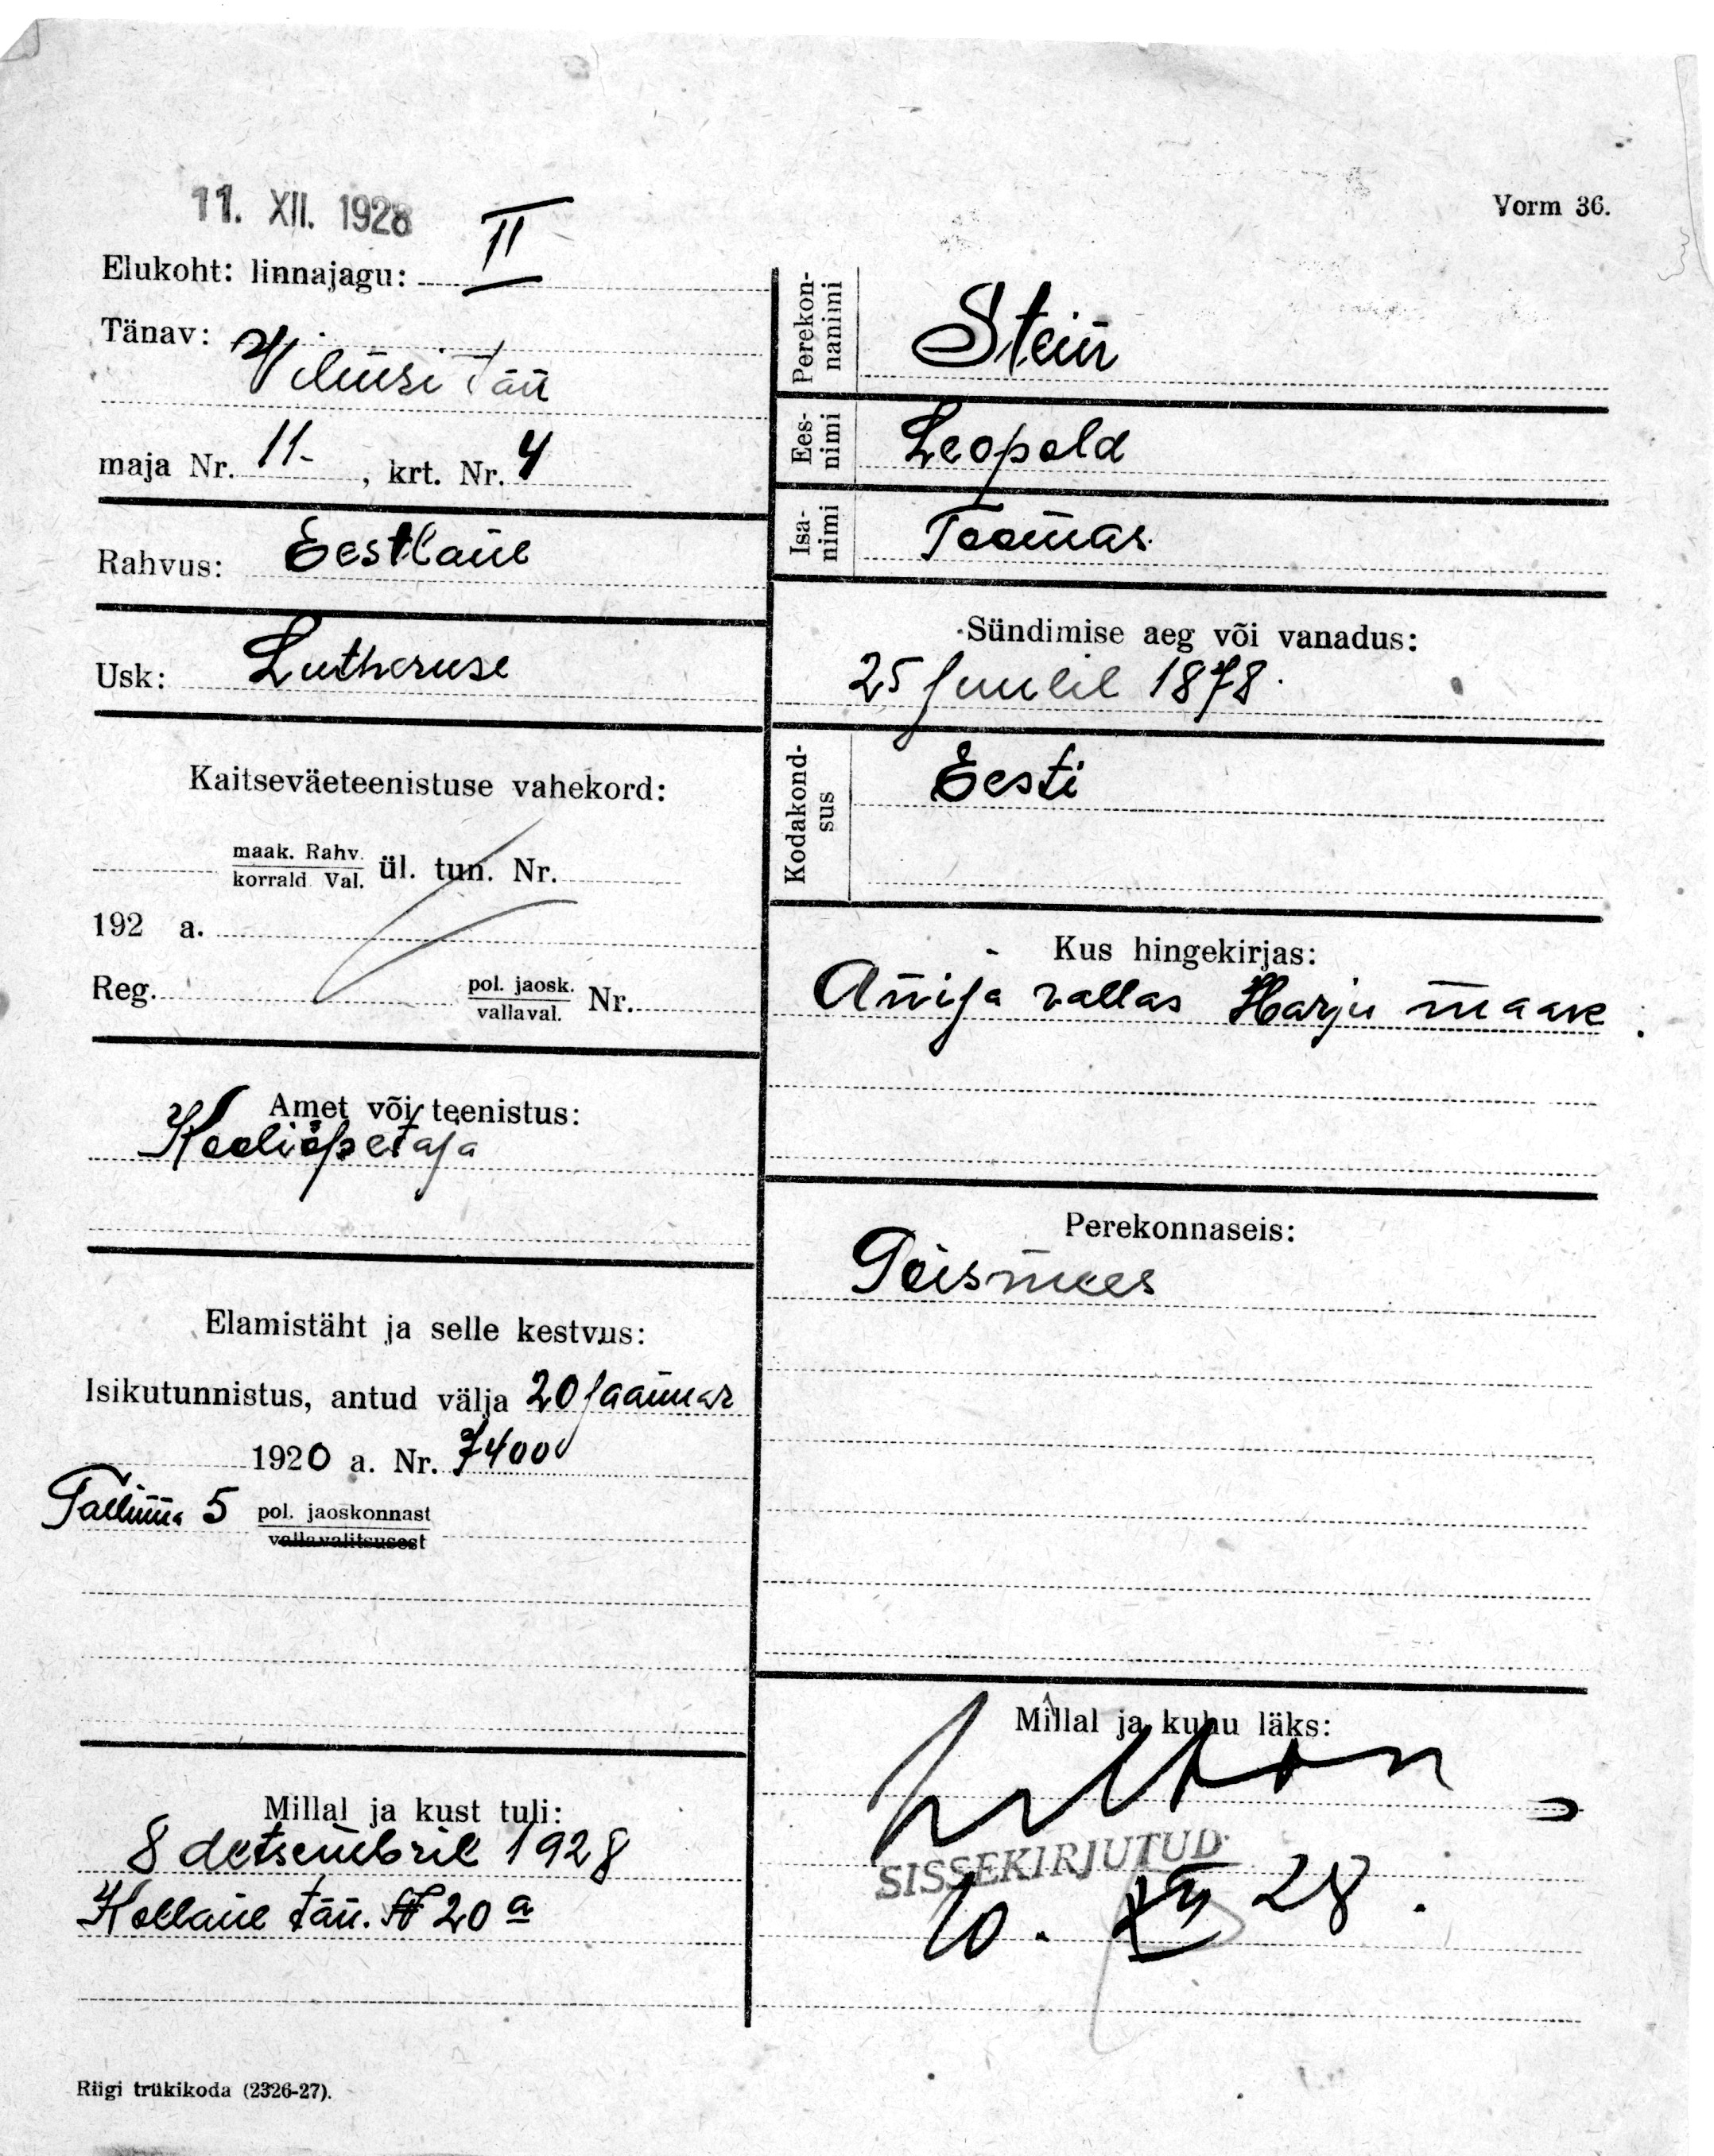 11. XII. 1928
Vorm 36.
Elukoht: linnajagu: II
Tänav: Vilmsi tän
maja Nr. 11- , krt. Nr. 4
Rahvus: Eestlane
Usk: Lutheruse
Kaitseväeteenistuse vahekord:
maak. Rahv.
korrald Val. ül. tun. Nr.
192 a.
Reg. pol. jaosk. Nr.
vallaval.
Amet või teenistus:
Kooliõpetaja
Elamistäht ja selle kestvus:
Isikutunnistus, antud välja 20 jaanuar
1920 a. Nr. 7400
Tallinna 5 pol. jaoskonnast
vallavalitsusest
Millal ja kust tuli:
8 detsembril 1928
Kollane tän. № 20 a
Perekon-
nanimi Stein
Ees-
nimi Leopold
Isa-
nimi Toomas
Sündimise aeg või vanadus:
25 Juulil 1878.
Kodakond-
sus Eesti
Kus hingekirjas:
Anija vallas Harju maak.
Perekonnaseis:
Poismees
Millal ja kuhu läks:
SISSEKIRJUTUD
10. XII 28.
Riigi trükikoda (2326-27).